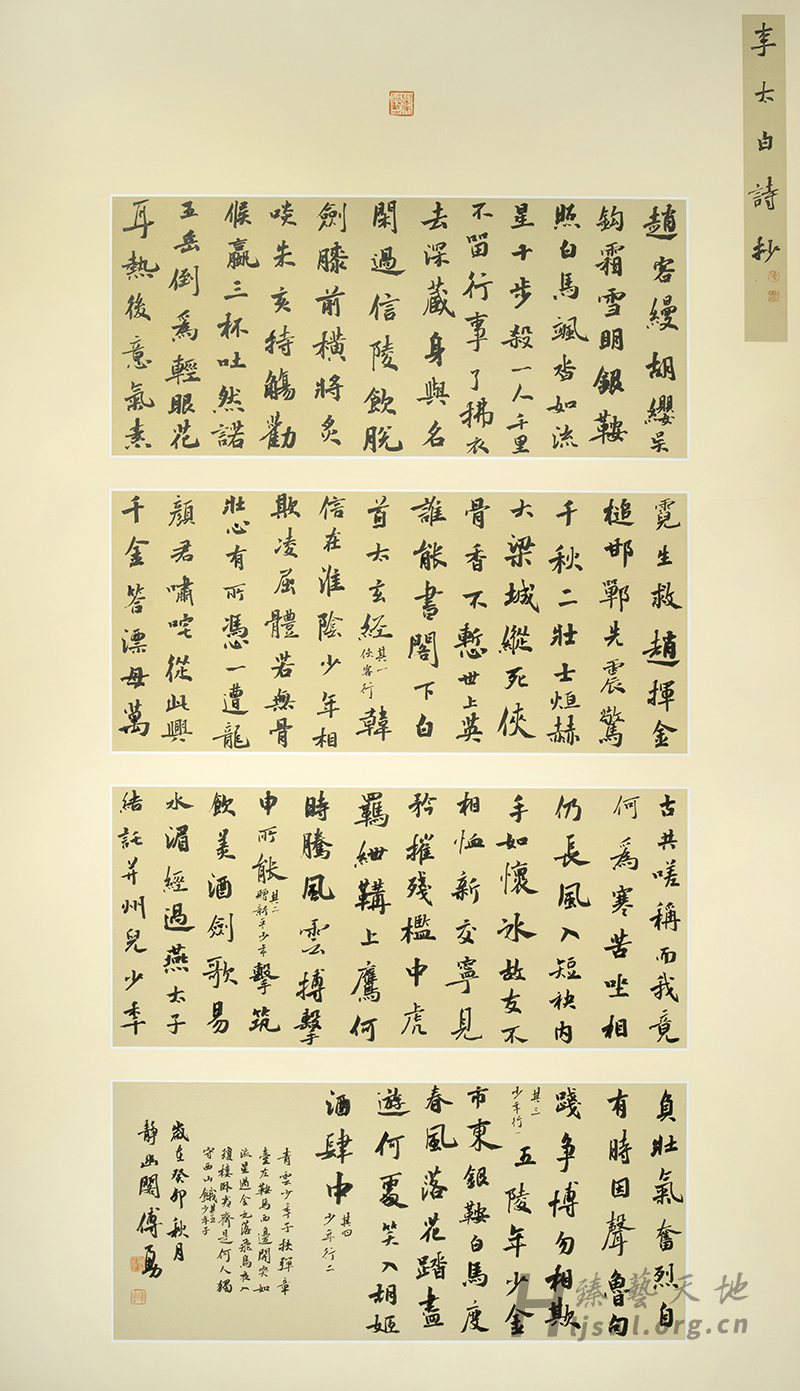 李太白詩抄
趙客縵胡纓吳
鈎霜雪明銀鞍
照白馬颯沓如流
星十步殺一人千里
不留行事了拂衣
去深藏身與名
閑過信陵飲脫
劍膝前橫將炙
啖朱亥持觴勸
侯嬴三杯吐然諾
五岳倒爲輕眼花
耳熱後意氣素
霓生救趙揮金
槌邯鄲先震驚
千秋二壯士烜赫
大梁城縱死俠
骨香不慙世上英
誰能書閣下白
首太玄經其一俠客行韓
信在淮陰少年相
欺凌屈體若無骨
壯心有所憑一遭龍
顏君嘯咤從此興
千金答漂母萬
古共嗟稱而我竟
何爲寒苦坐相
仍長風入短袂內
手如懷冰故友不
相恤新交寧見
矜摧殘檻中虎
羈紲鞲上鷹何
時騰風雲搏擊
申所能其二贈新平少年擊筑
飲美酒劍歌易
水湄經過燕太子
結託并州兒少年
負壯氣奮烈自
有時因聲魯句
踐爭博勿相欺
其三少年行一五陵年少金
市東銀鞍白馬度
春風落花踏盡
遊何處笑入胡姬
酒肆中其四少年行二
青雲少年子挾彈章
臺左鞍馬四邊開突如
流星過金丸落飛鳥夜入
瓊樓臥夷齊是何人獨
守西山餓其五少年子
歲在癸卯秋月
靜幽閣傅勇
臻藝天地